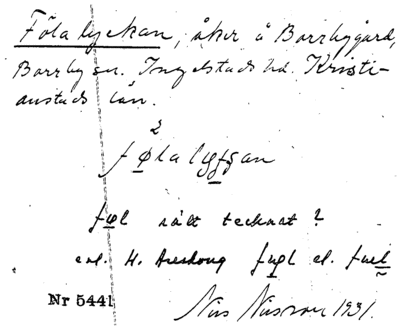 Föla lyckan, åker å Borrbygård,
Borrby sn. Ingelstads hd. Kristi-
anstads län.
2
følalyggan
føl rätt tecknat?
enl. H. Areskoug fugl el. fuel
Nr 5441 Nils Nilsson 1931.